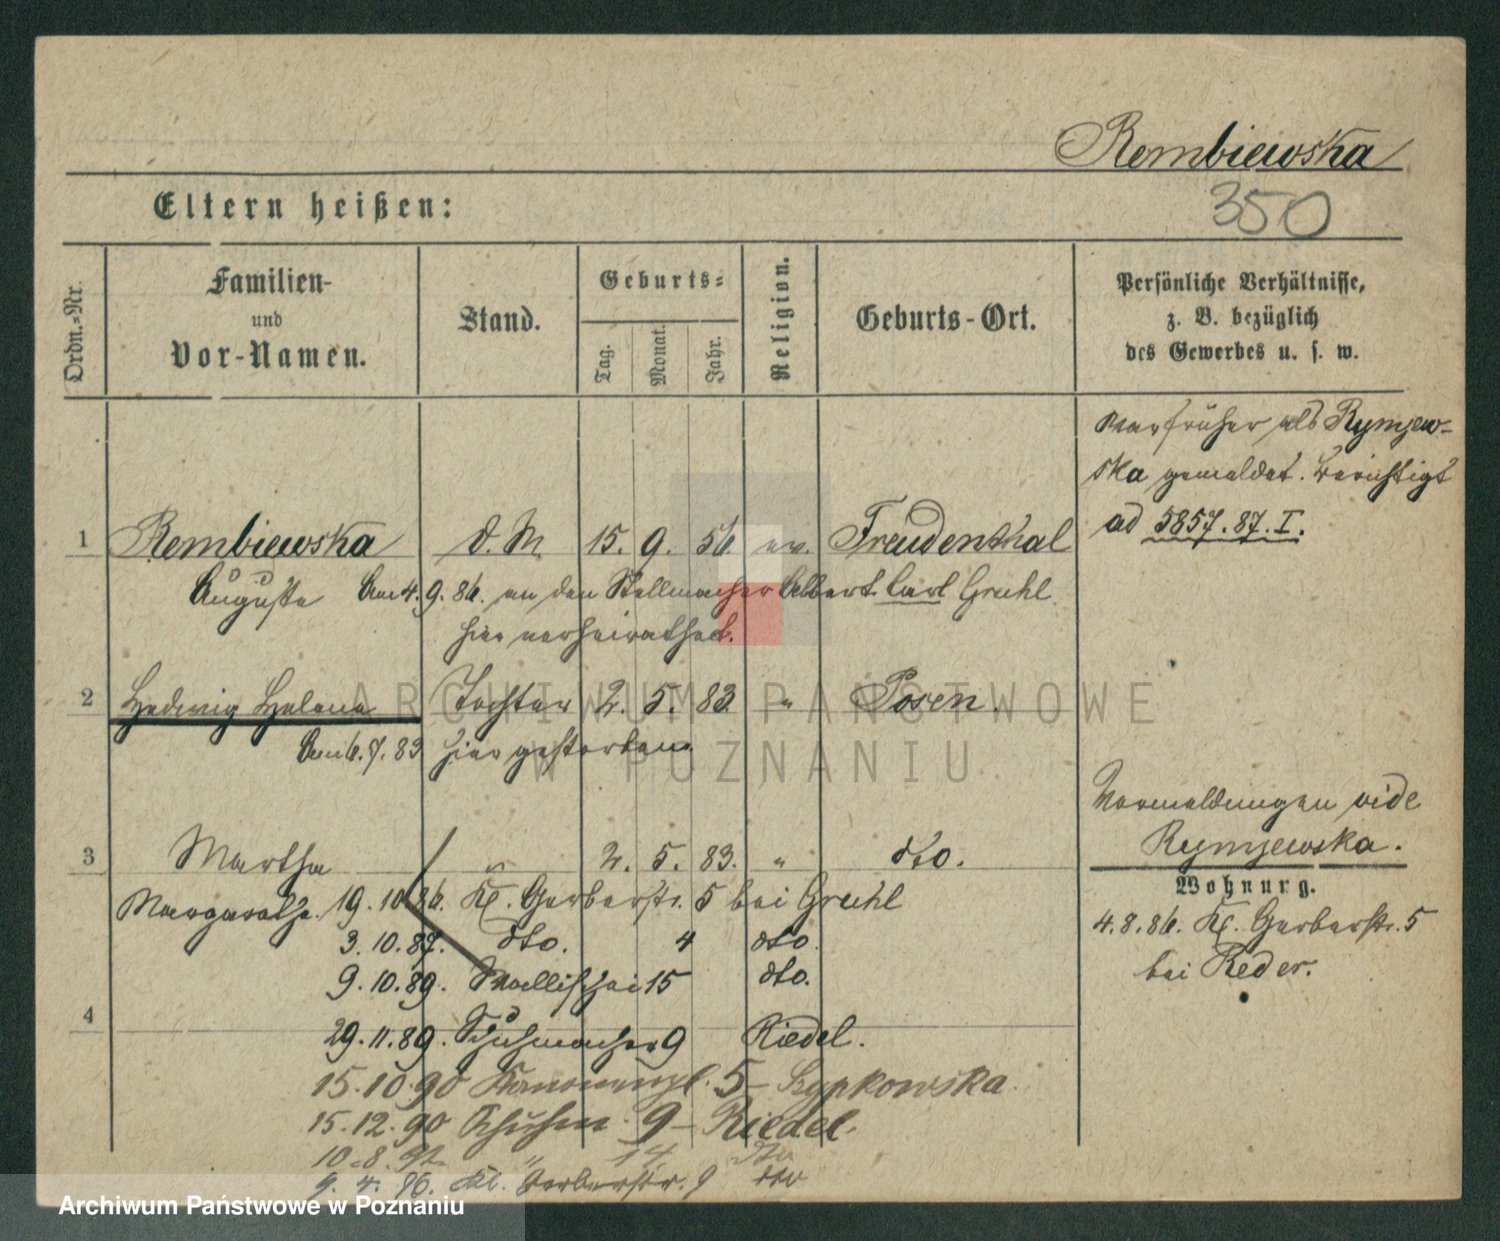 Rembiewska
Eltern heißen:
350
Ordn.-Nr.
Familien-
und
Vor-Namen.
Stand.
Geburts-
Tag.
Monat.
Jahr.
Religion.
Geburts-Ort.
Persönliche Verhältnisse,
z. B. bezüglich
des Gewerbes u. s. w.
war früher als Rymjew-
ska gemeldet. Berichtigt
ad 5857.87.I.
1 Rembiewska d. M. 15. 9. 56. ev. Freudenthal
Auguste Am 4.9.86. an den Stellmacher Albert Carl Gruhl
hier verheirathet.
2 Hedwig Helene Tochter 2. 5. 83. " Posen.
Am 6.7.83 hier gestorben.
Vormeldungen vide
Rymjewska.
3 Martha 2. 5. 83. " dto.
Margarethe 19.10.86. Kl. Gerberstr. 5 bei Gruhl
3.10.87. dto. 4 dto.
9.10.89. Wallischei 15 dto.
Wohnung.
4.8.86. Kl. Gerberstr. 5
bei Reder.
4
29.11.89. Schuhmacher 9 Riedel.
15.10.90 Kanonenpl. 5 - Szypkowska.
15.12.90 Schuhm. 9 - Riedel.
10.8.92. " 14 dto
9. 4. 96. Kl. Gerberstr. 9 dto
ARCHIWUM PAŃSTWOWE
W POZNANIU
Archiwum Państwowe w Poznaniu